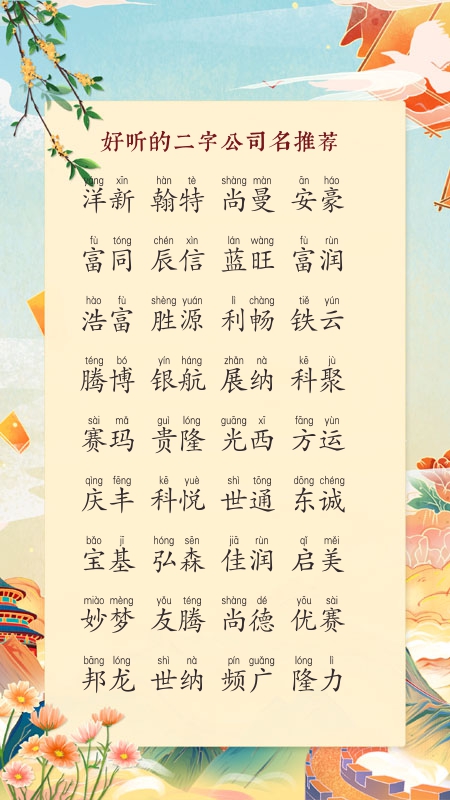 好听的二字公司名推荐
yáng xīn hàn tè shàng màn ān háo
洋新 翰特 尚曼 安豪
fù tóng chén xìn lán wàng fù rùn
富同 辰信 蓝旺 富润
hào fù shèng yuán lì chàng tiě yún
浩富 胜源 利畅 铁云
téng bó yín háng zhǎn nà kē jù
腾博 银航 展纳 科聚
sài mǎ guì lóng guāng xī fāng yùn
赛玛 贵隆 光西 方运
qìng fēng kē yuè shì tōng dōng chéng
庆丰 科悦 世通 东诚
bǎo jī hóng sēn jiā rùn qǐ měi
宝基 弘森 佳润 启美
miào mèng yǒu téng shàng dé yōu sài
妙梦 友腾 尚德 优赛
bāng lóng shì nà pín guǎng lóng lì
邦龙 世纳 频广 隆力